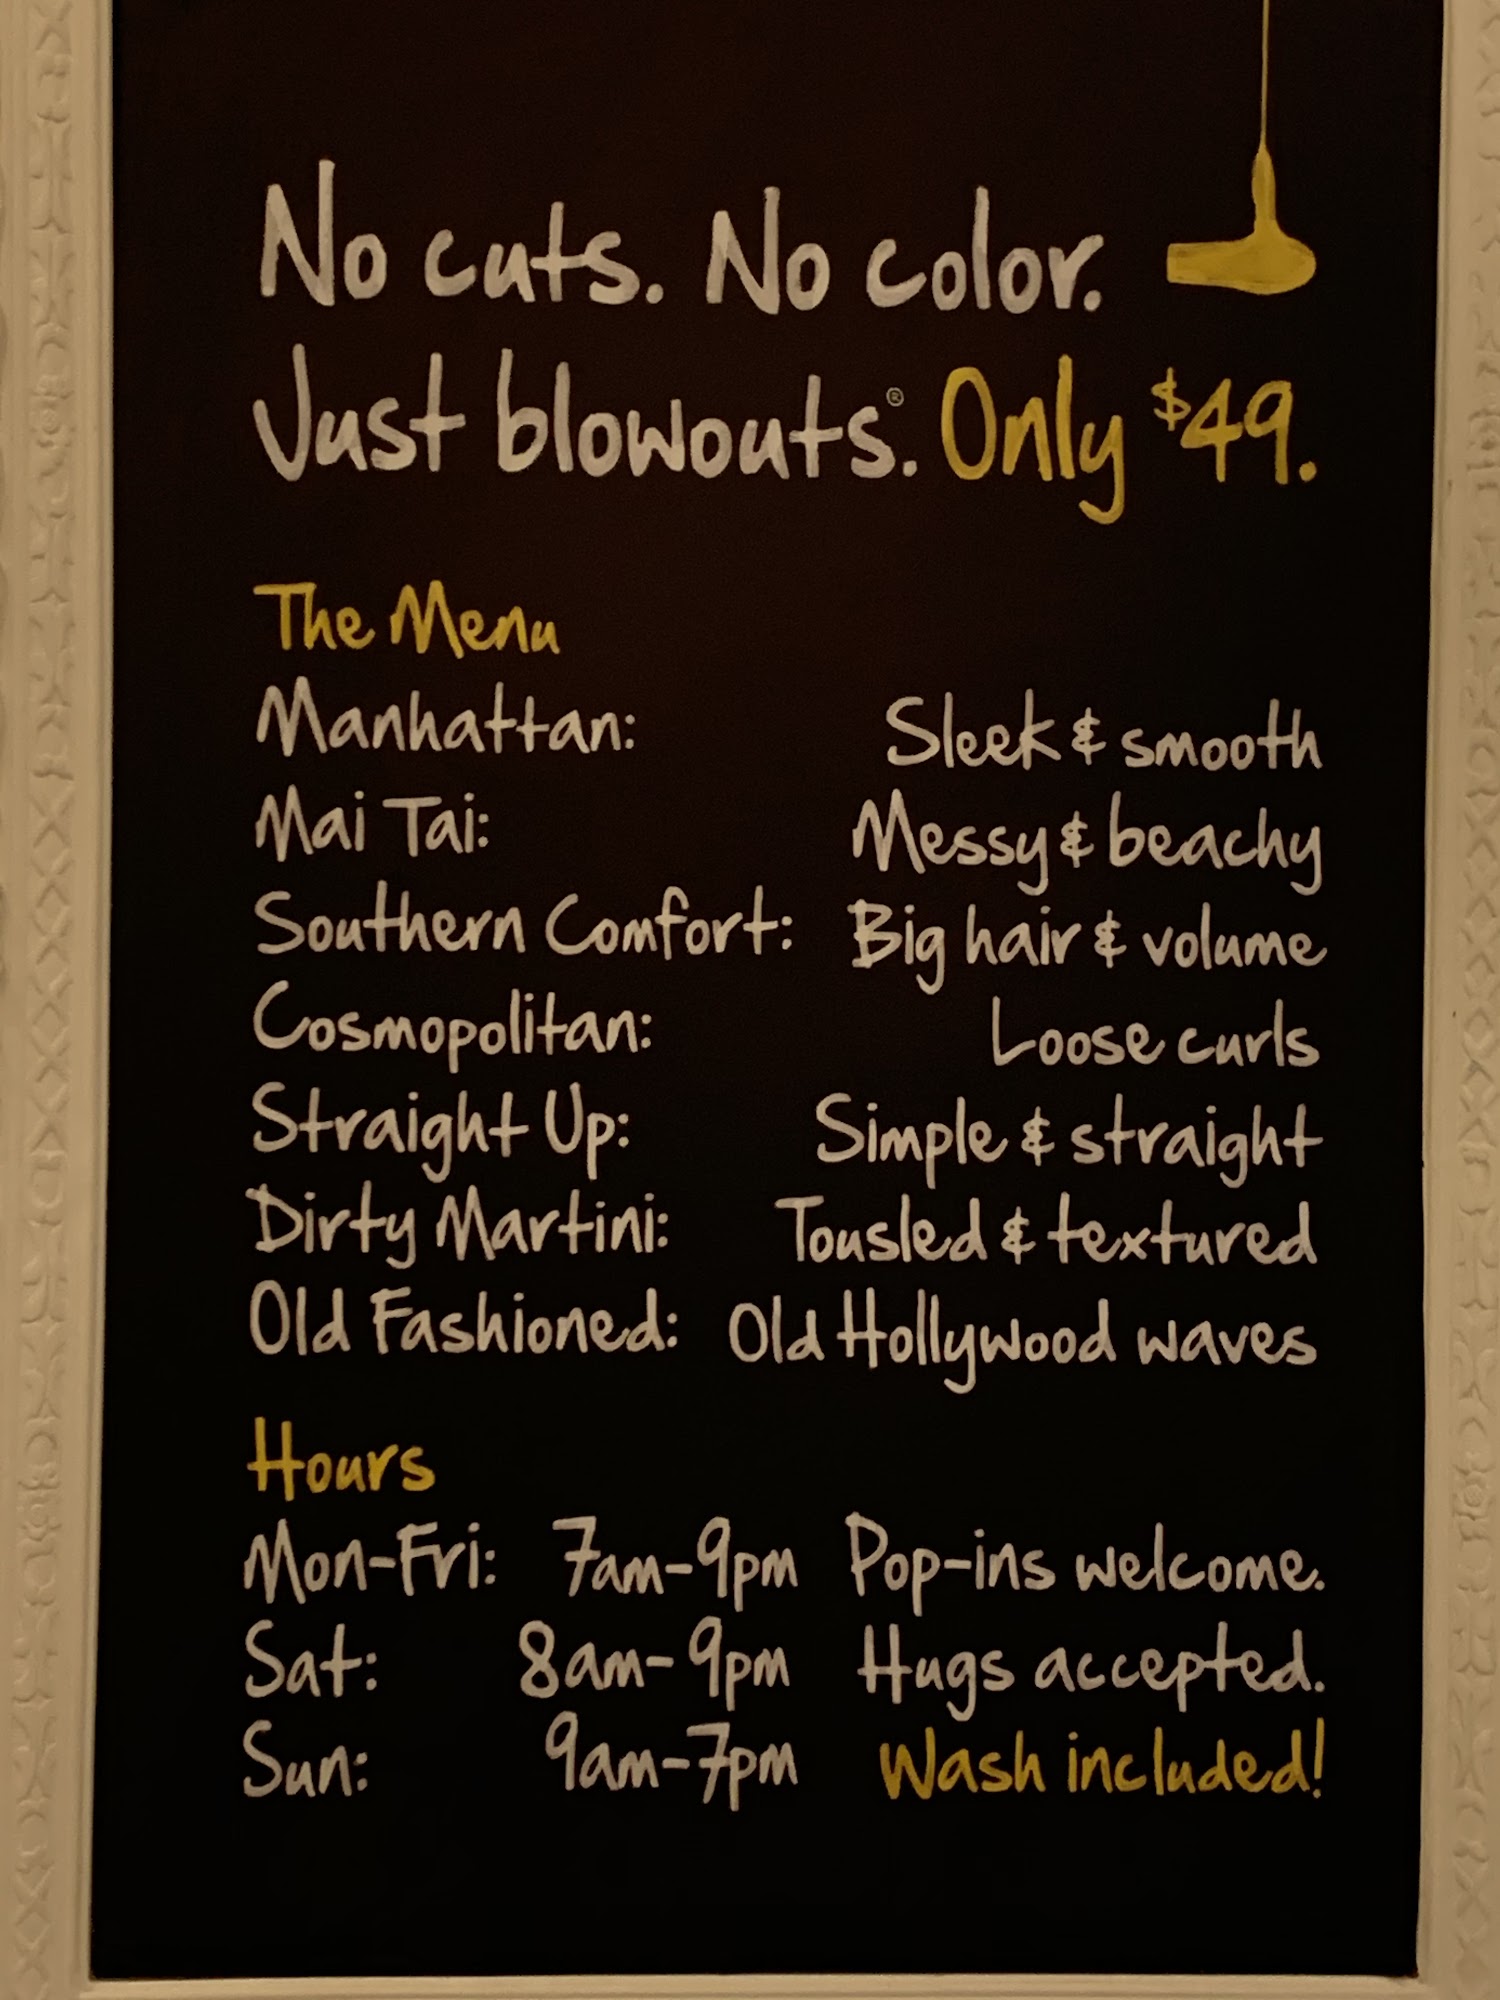 No cuts. No color.
Just blowouts.® Only $49.
The Menu
Manhattan: Sleek & smooth
Mai Tai: Messy & beachy
Southern Comfort: Big hair & volume
Cosmopolitan: Loose curls
Straight Up: Simple & straight
Dirty Martini: Tousled & textured
Old Fashioned: Old Hollywood waves
Hours
Mon-Fri: 7am-9pm Pop-ins welcome.
Sat: 8am-9pm Hugs accepted.
Sun: 9am-7pm Wash included!